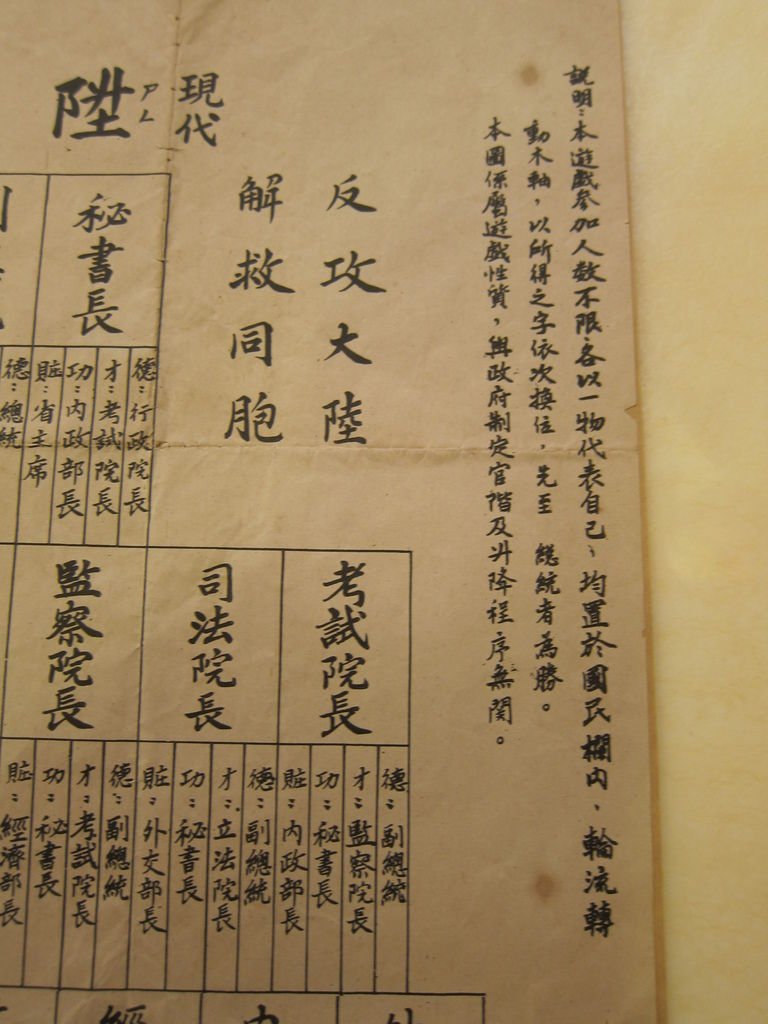 說明：本遊戲參加人数不限，各以一物代表自己、均置於國民欄内，輪流轉
動木軸，以所得之字依次換位，先至 總統者為勝。
本圖係屬遊戲性質，與政府制定官階及升降程序無関。
反攻大陸
解救同胞
現代
陞
ㄕㄥ
秘書長
德：行政院長
才：考試院長
功：内政部長
賍：省主席
德：總統
考試院長
德：副總統
才：監察院長
功：秘書長
賍：内政部長
司法院長
德：副總統
才：立法院長
功：秘書長
賍：外交部長
監察院長
德：副總統
才：考試院長
功：秘書長
賍：經濟部長
經